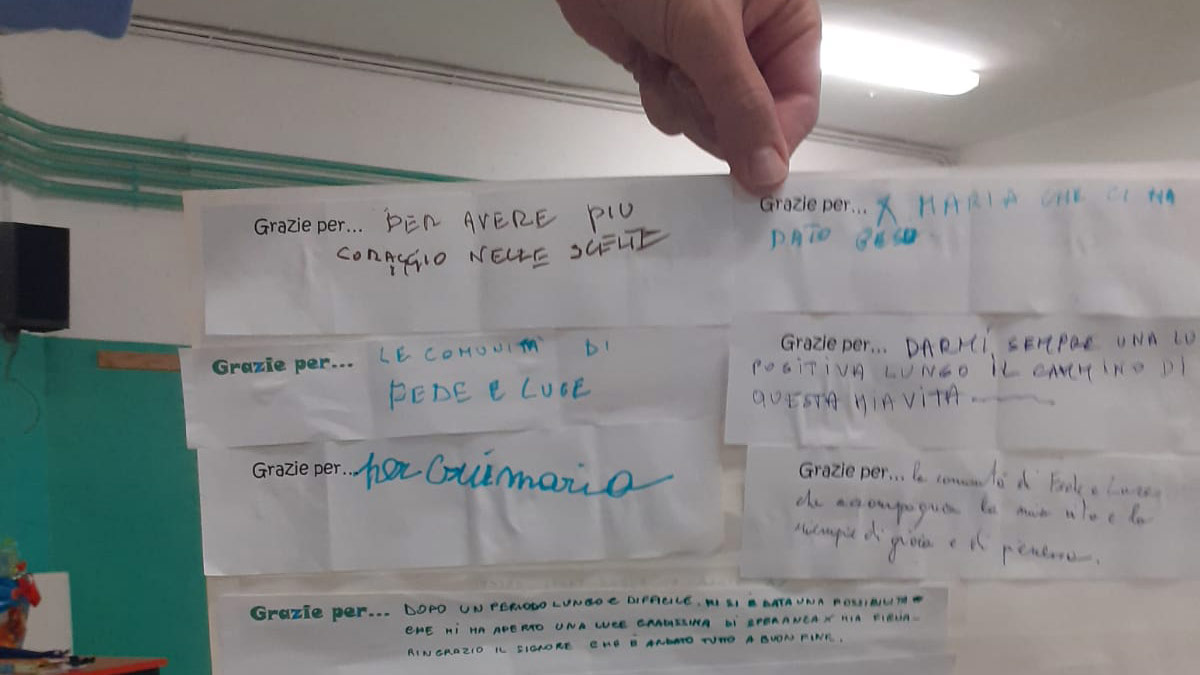 Grazie per... PER AVERE PIU
CORAGGIO NELLE SCELTE
Grazie per... X MARIA CHE CI HA
DATO GESU
Grazie per... LE COMUNITA' DI
FEDE E LUCE
Grazie per... DARMI SEMPRE UNA LU
POSITIVA LUNGO IL CAMMINO DI
QUESTA MIA VITA
Grazie per... per Guimaria
Grazie per... la comunità di Fede e Luce
che accompagna la mia vita e la
riempie di gioia e di
Grazie per... DOPO UN PERIODO LUNGO E DIFFICILE. MI SI È DATA UNA POSSIBILITÀ
CHE MI HA APERTO UNA LUCE GRADISSINA DI SPERANZA X MIA FIGLIA.
RINGRAZIO IL SIGNORE CHE È ANDATO TUTTO A BUON FINE.